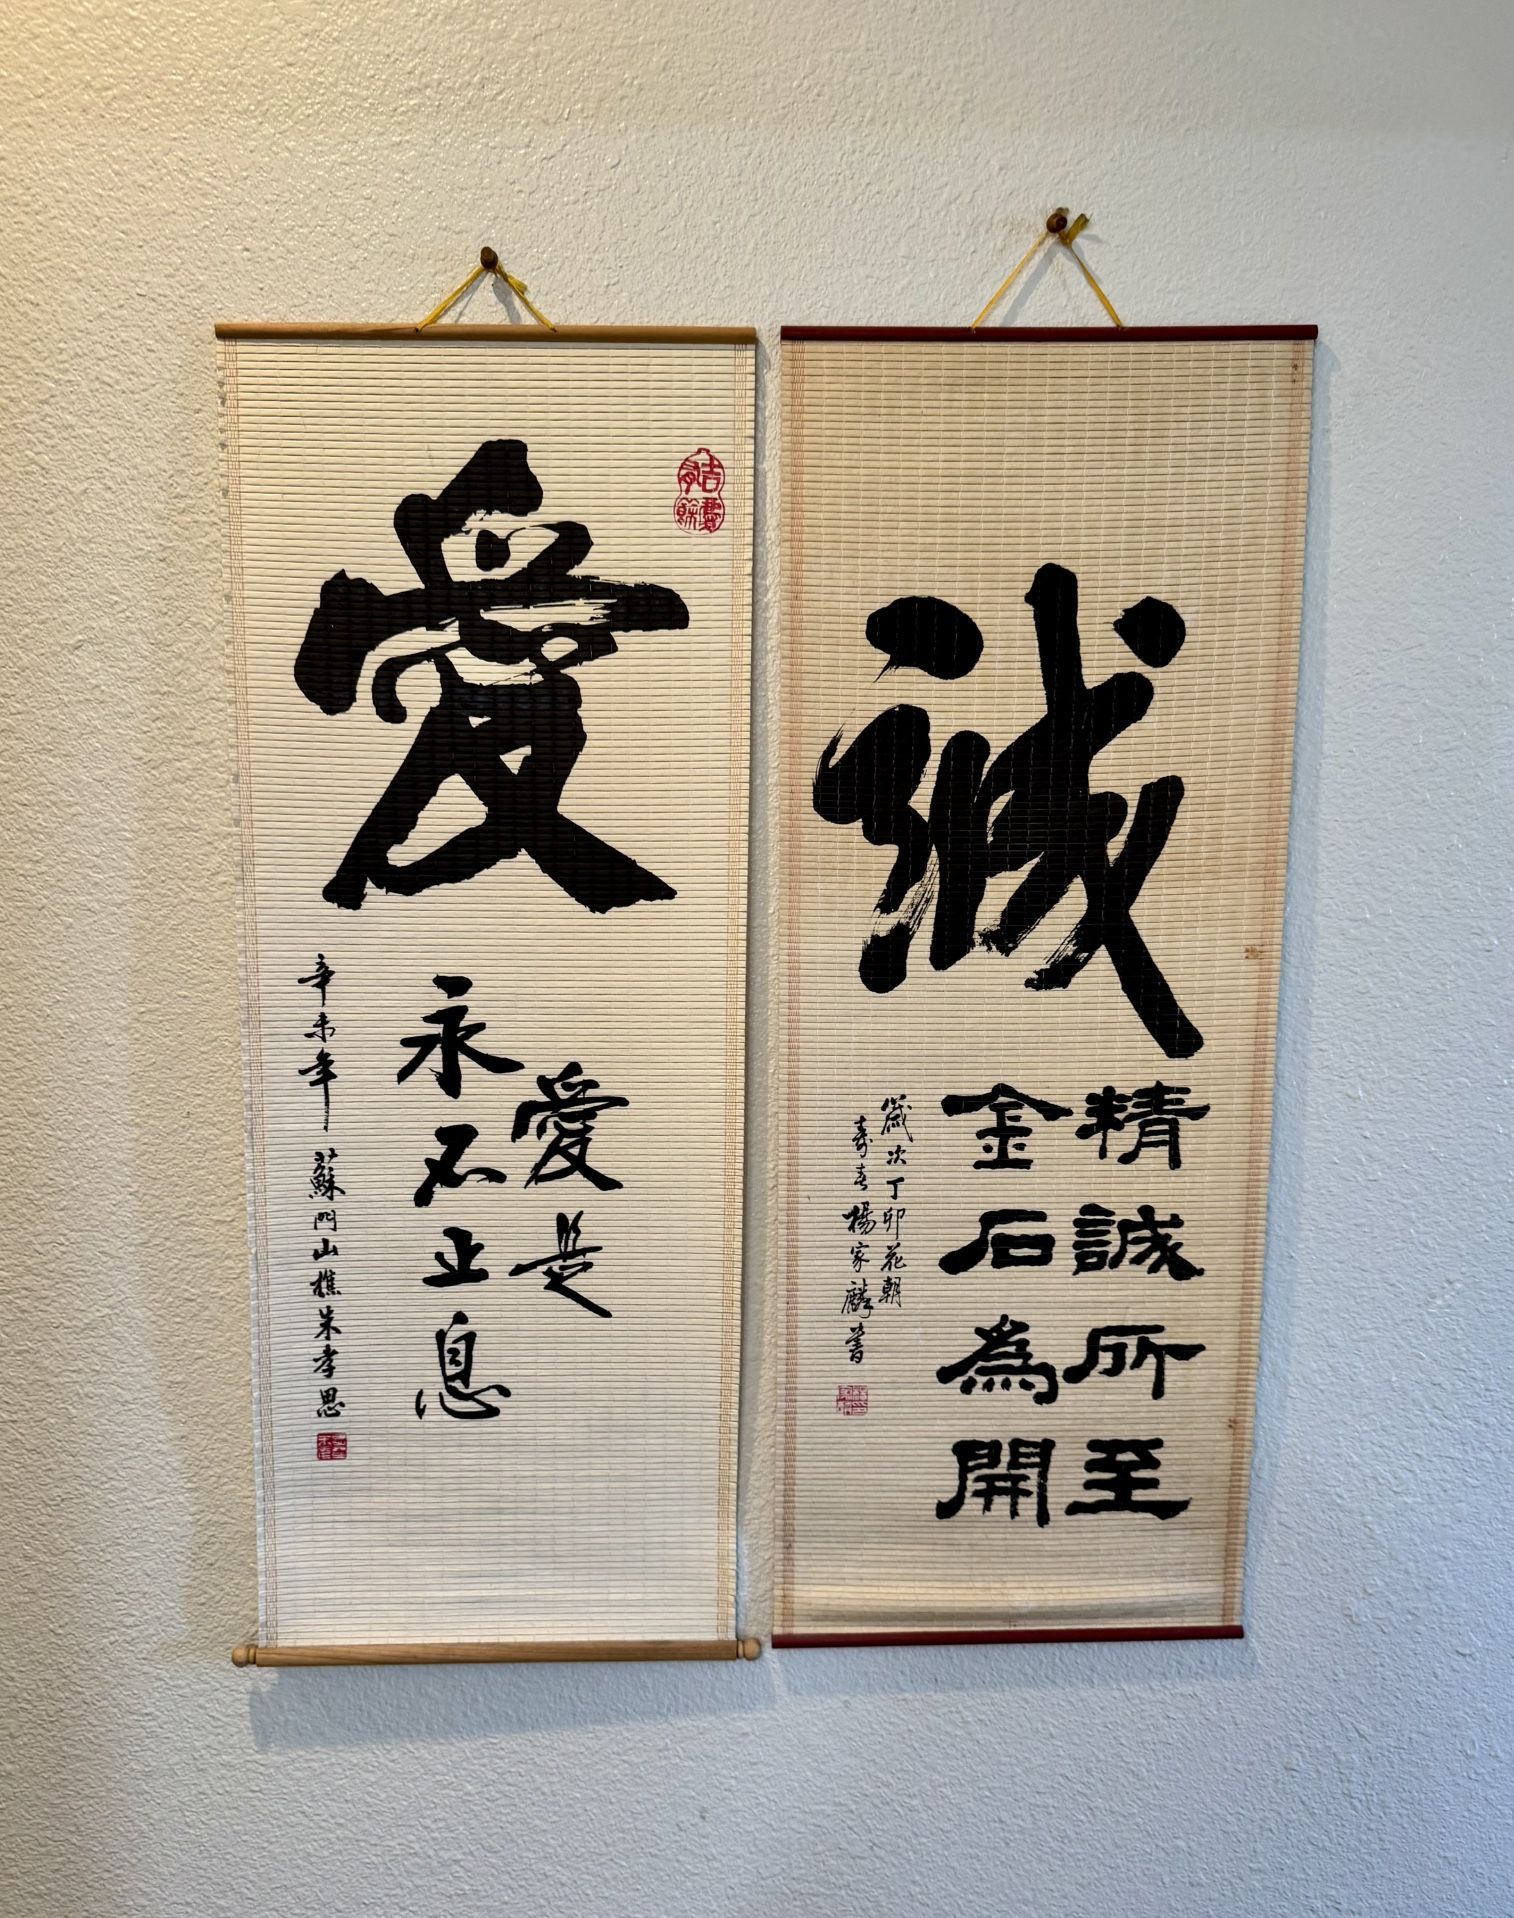 愛
吉慶有餘
愛是
永不止息
辛未年 蘇門山樵朱孝思
誠
精誠所至
金石為開
歲次丁卯花朝
壽春楊家麟書